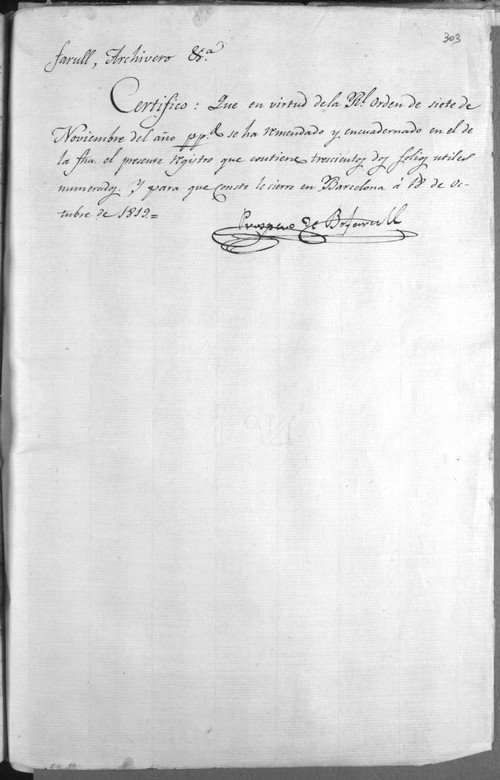 303
farull, Archivero &.ª
Certifico: Que en virtud de la Rl. orden de siete de
Noviembre del año pp.º se ha remendado y encuadernado en el de
la fha. el presente registro que contiene trecientos dos folios utiles
numerados. Y para que conste le cierro en Barcelona á de oc-
tubre de 1819.=
Prospero de Bofarull